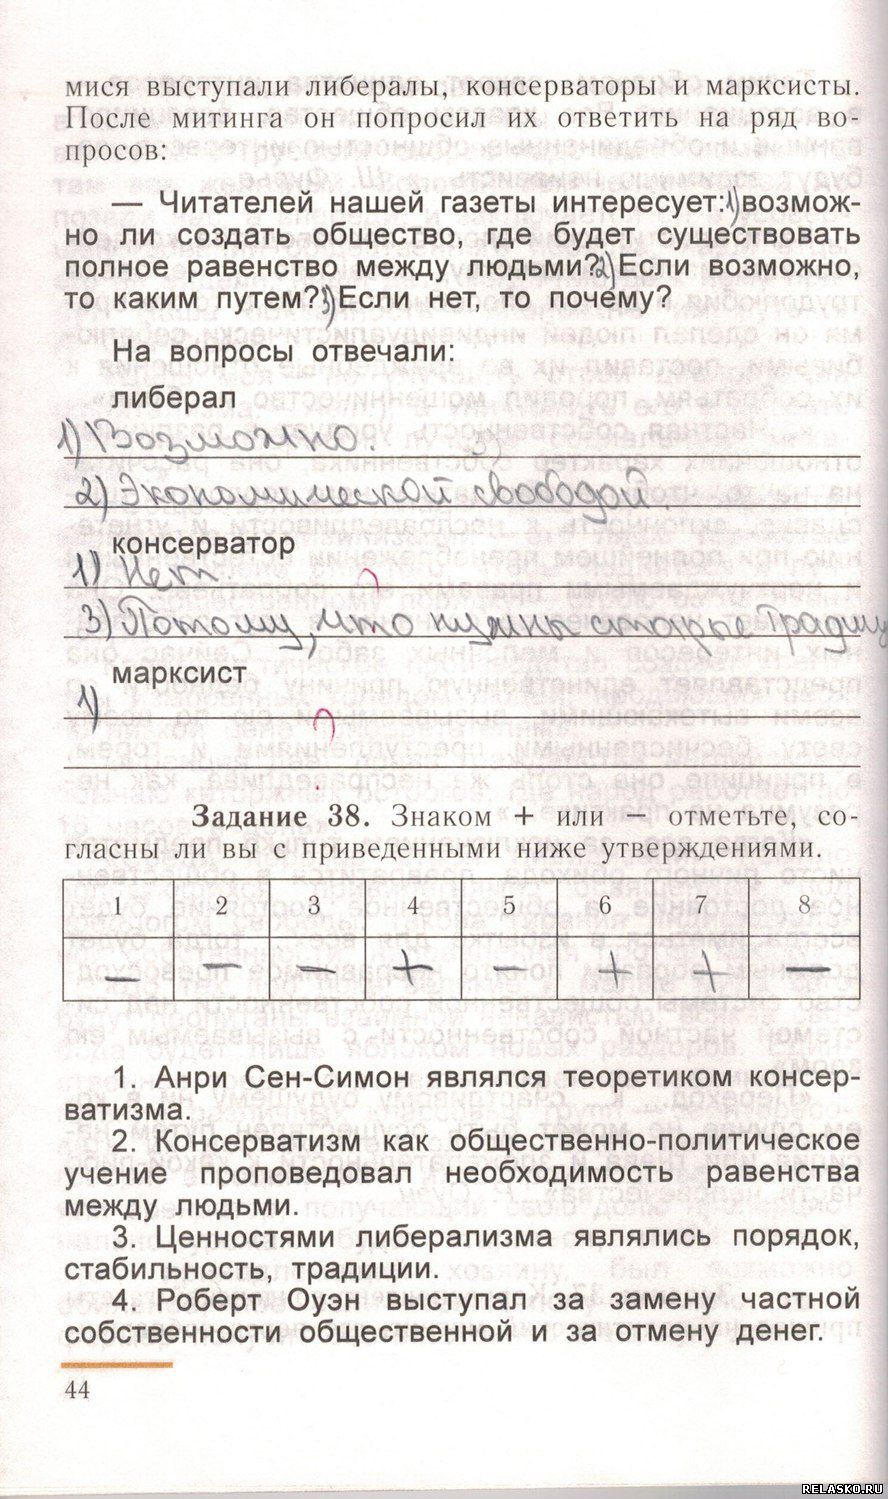 мися выступали либералы, консерваторы и марксисты.
После митинга он попросил их ответить на ряд во-
просов:
— Читателей нашей газеты интересует:1)возмож-
но ли создать общество, где будет существовать
полное равенство между людьми?2)Если возможно,
то каким путем?3)Если нет, то почему?
На вопросы отвечали:
либерал
1) Возможно. 3)
2) Экономической свободой.
консерватор
1) Нет.
3) Потому, что нужны старые традиц
марксист
1)
Задание 38. Знаком + или — отметьте, со-
гласны ли вы с приведенными ниже утверждениями.
1 2 3 4 5 6 7 8
— — — + — + + —
1. Анри Сен-Симон являлся теоретиком консер-
ватизма.
2. Консерватизм как общественно-политическое
учение проповедовал необходимость равенства
между людьми.
3. Ценностями либерализма являлись порядок,
стабильность, традиции.
4. Роберт Оуэн выступал за замену частной
собственности общественной и за отмену денег.
44
RELASKO.RU